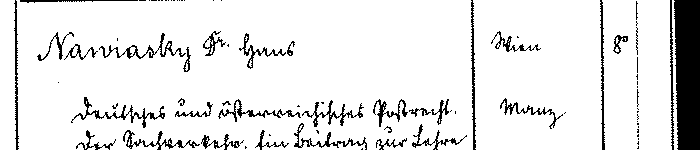 Nawiasky Dr. Hans Wien 8°
Deutsches und österreichisches Postrecht. Manz
Der Sachverkehr. Ein Beitrag zur Lehre